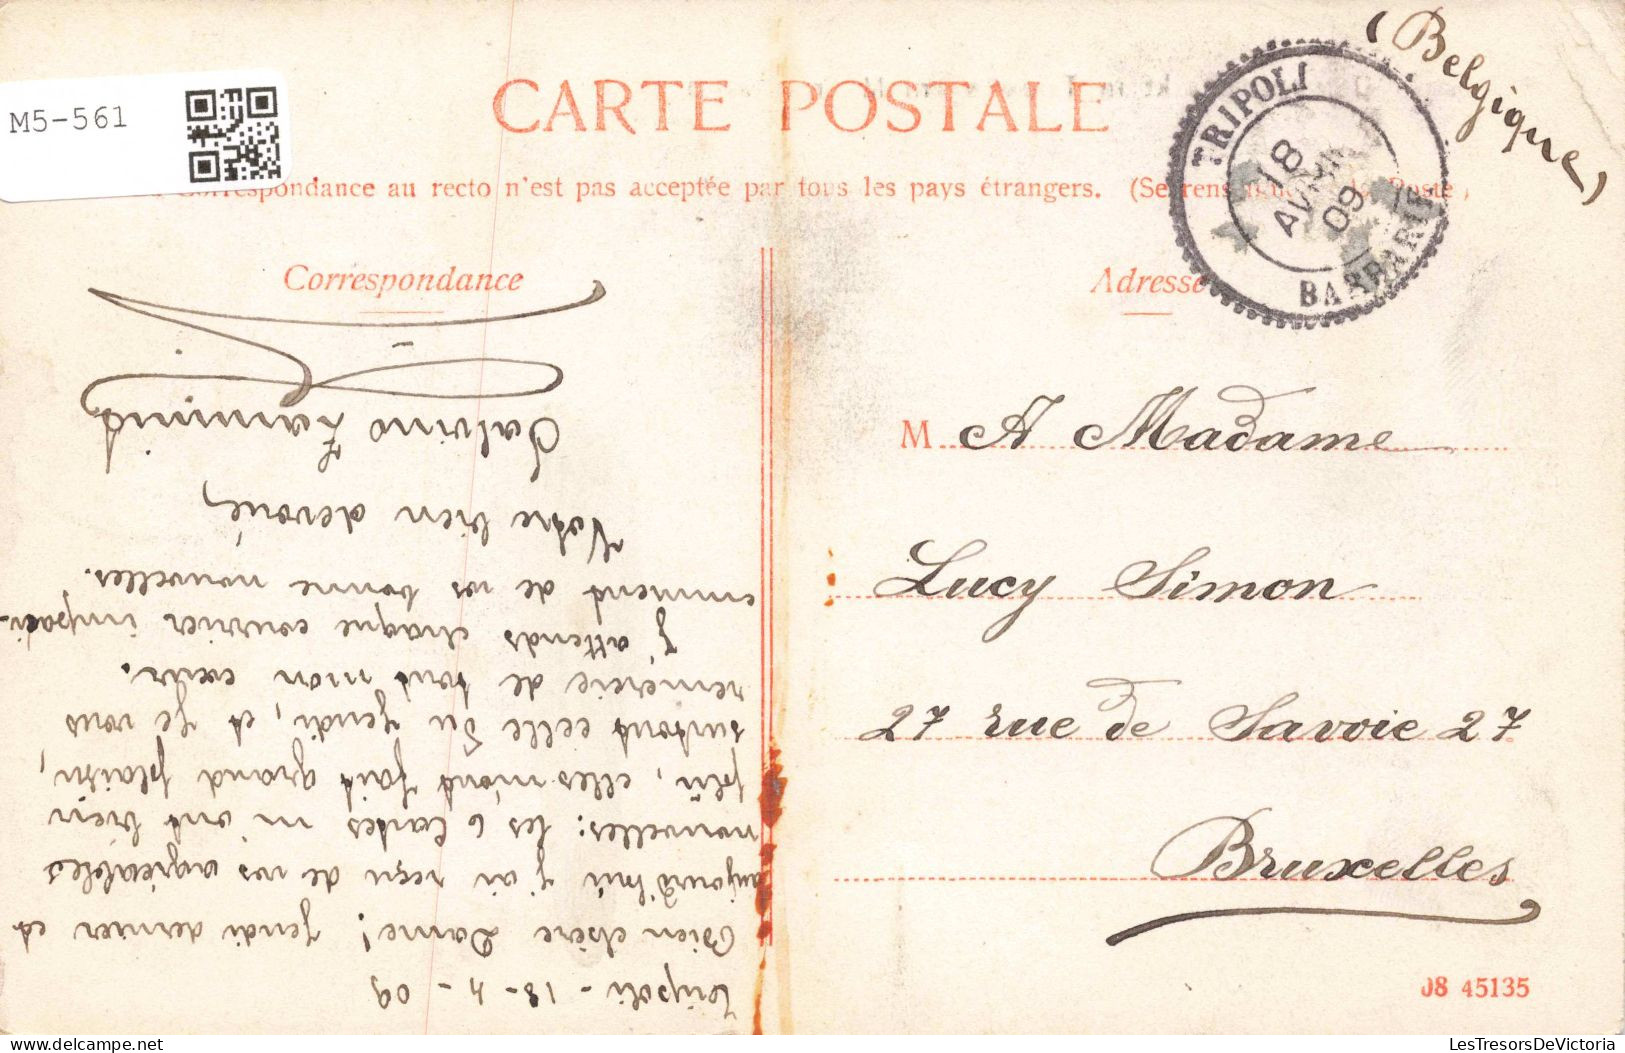 M5-561
CARTE POSTALE
Correspondance au recto n'est pas acceptée par tous les pays étrangers. (Se rens à la Poste)
(Belgique)
TRIPOLI
18
AVRIL
09
BARBARIE
Correspondance
Tripoli - 18-4-09
Bien chère Dame! Jeudi dernier et
aujourd'hui j'ai reçu de vos agréables
nouvelles: les 6 Cartes m'ont bien
plû, elles m'ont fait grand plaisir,
surtout celle du Jeudi, et Je vous
remercie de tout mon cœur.
J'attends chaque courrier impati-
emment de vos bonne nouvelles.
Votre bien devoué,
Salvino Zammit
Adresse
M A Madame
Lucy Simon
27 rue de Savoie 27
Bruxelles
08 45135
delcampe.net
LesTresorsDeVictoria